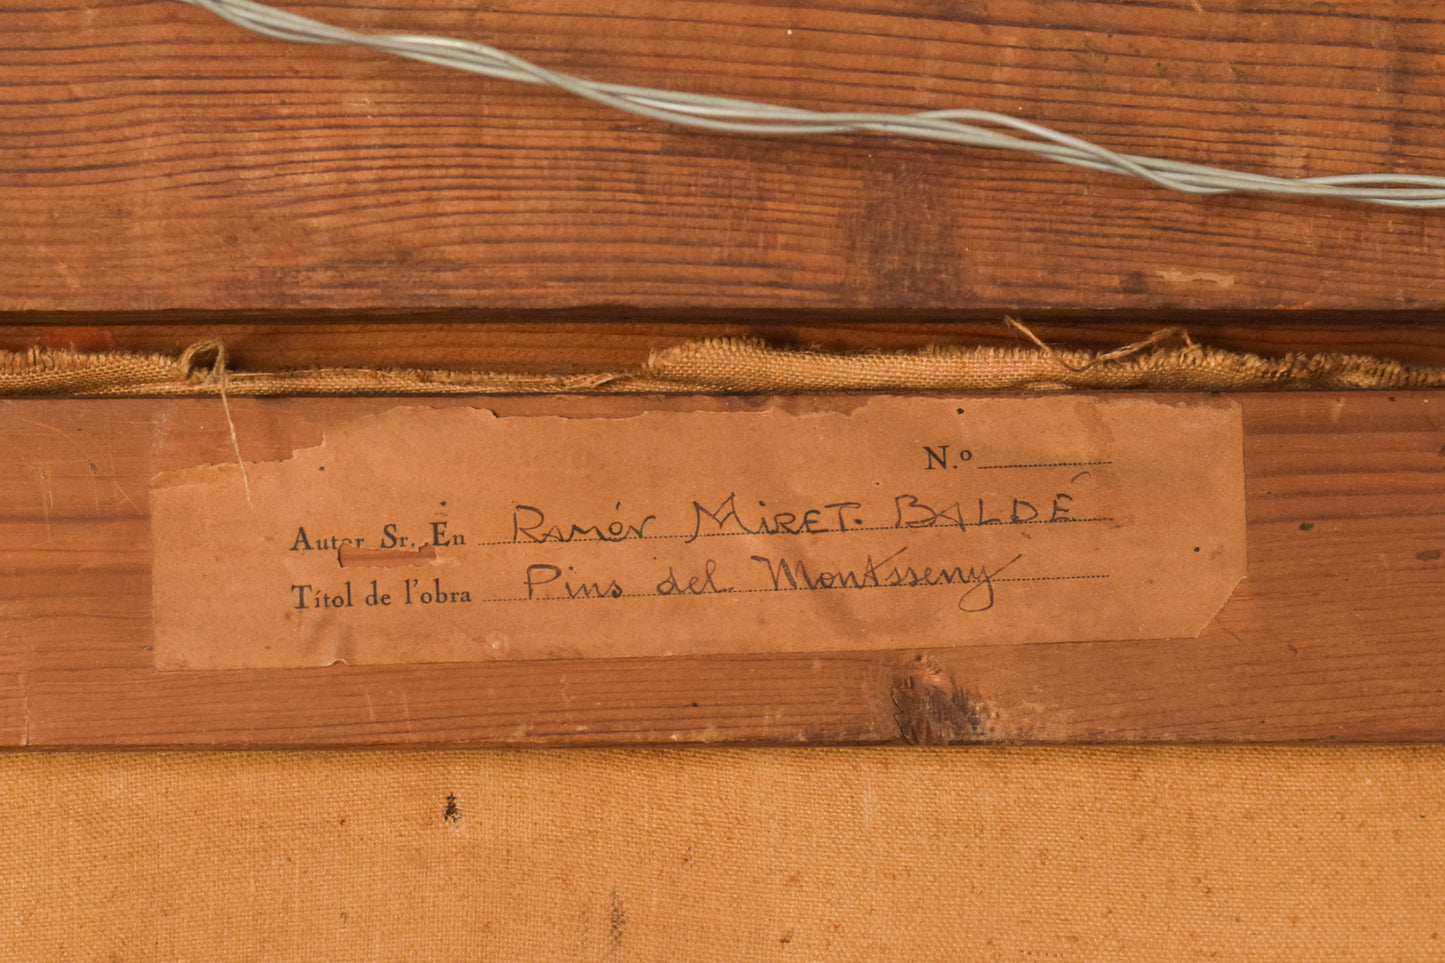 N.º
Autor Sr. En Ramón MIRET. BALDÉ
Títol de l'obra Pins del Montsseny